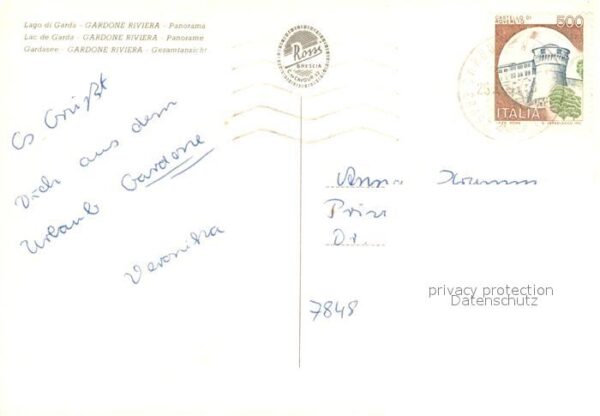 Lago di Garda - GARDONE RIVIERA - Panorama
Lac de Garda - GARDONE RIVIERA - Panorame
Gardasee - GARDONE RIVIERA - Gesamtansicht
Ross
BRESCIA
CASTELLO DI
ROVERETO
500
ITALIA
Es Grüßt
Dich aus dem
Urlaub Gardone
Veronika
Anna
Prin
Dr
7848
privacy protection
Datenschutz